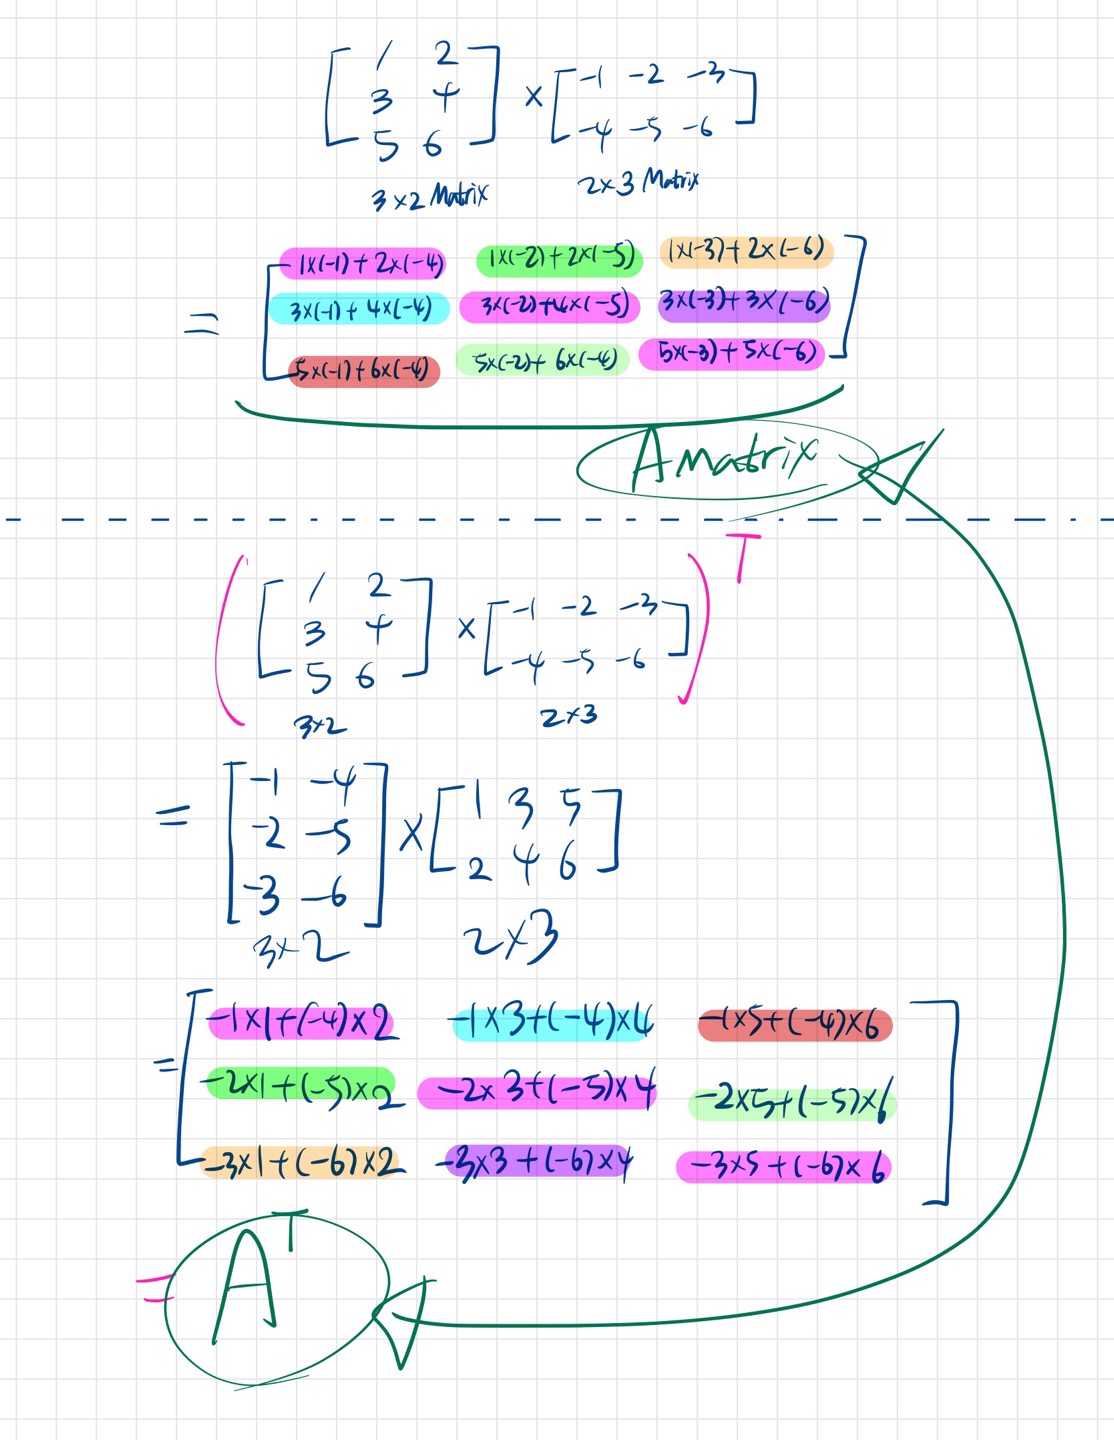 [ 1 2 ] × [ -1 -2 -3 ]
[ 3 4 ] [ -4 -5 -6 ]
[ 5 6 ]
3×2 Matrix 2×3 Matrix
1×(-1)+2×(-4) 1×(-2)+2×(-5) 1×(-3)+2×(-6)
= 3×(-1)+4×(-4) 3×(-2)+4×(-5) 3×(-3)+3×(-6)
5×(-1)+6×(-4) 5×(-2)+6×(-4) 5×(-3)+5×(-6)
A Matrix
( [ 1 2 ] × [ -1 -2 -3 ] ) T
[ 3 4 ] [ -4 -5 -6 ]
[ 5 6 ]
3×2 2×3
= [ -1 -4 ] × [ 1 3 5 ]
[ -2 -5 ] [ 2 4 6 ]
[ -3 -6 ]
3×2 2×3
-1×1+(-4)×2 -1×3+(-4)×4 -1×5+(-4)×6
= -2×1+(-5)×2 -2×3+(-5)×4 -2×5+(-5)×6
-3×1+(-6)×2 -3×3+(-6)×4 -3×5+(-6)×6
= A T